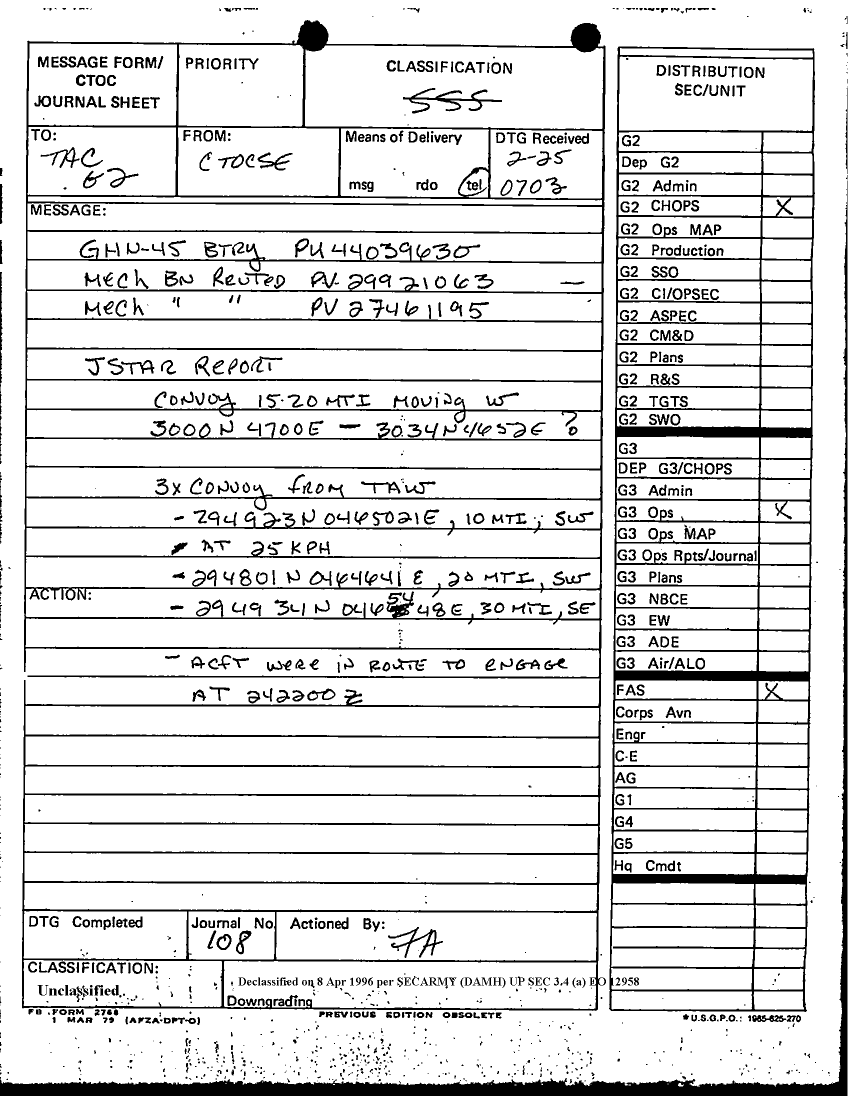 MESSAGE FORM/
CTOC
JOURNAL SHEET
PRIORITY
CLASSIFICATION
SSS
TO:
TAC
G2
FROM:
CTOCSE
Means of Delivery
msg rdo tel
DTG Received
2-25
0703
MESSAGE:
GHN-45 BTRY PU 44039630
MECH BN REUTED PV 29921063 —
MECH " " PV 27461195
JSTAR REPORT
CONVOY 15-20 MTI MOVING W
3000N 4700E — 3034N 4652E ?
3x CONVOY FROM TAW
- 294923N 0465021E, 10 MTI, SW
AT 25 KPH
- 294801N 0464641E, 20 MTI, SW
ACTION:
- 2949 341N 0465448E, 30 MTI, SE
- ACFT WERE IN ROUTE TO ENGAGE
AT 242200Z
DTG Completed
Journal No.
108
Actioned By:
7A
CLASSIFICATION:
Unclassified
Declassified on 8 Apr 1996 per SECARMY (DAMH) UP SEC 3.4 (a) EO 12958
Downgrading
FB FORM 2768
1 MAR 79 (AFZA-DPT-O)
PREVIOUS EDITION OBSOLETE
*U.S.G.P.O.: 1985-625-270
DISTRIBUTION
SEC/UNIT
G2
Dep G2
G2 Admin
G2 CHOPS X
G2 Ops MAP
G2 Production
G2 SSO
G2 CI/OPSEC
G2 ASPEC
G2 CM&D
G2 Plans
G2 R&S
G2 TGTS
G2 SWO
G3
DEP G3/CHOPS
G3 Admin
G3 Ops X
G3 Ops MAP
G3 Ops Rpts/Journal
G3 Plans
G3 NBCE
G3 EW
G3 ADE
G3 Air/ALO
FAS X
Corps Avn
Engr
C-E
AG
G1
G4
G5
Hq Cmdt